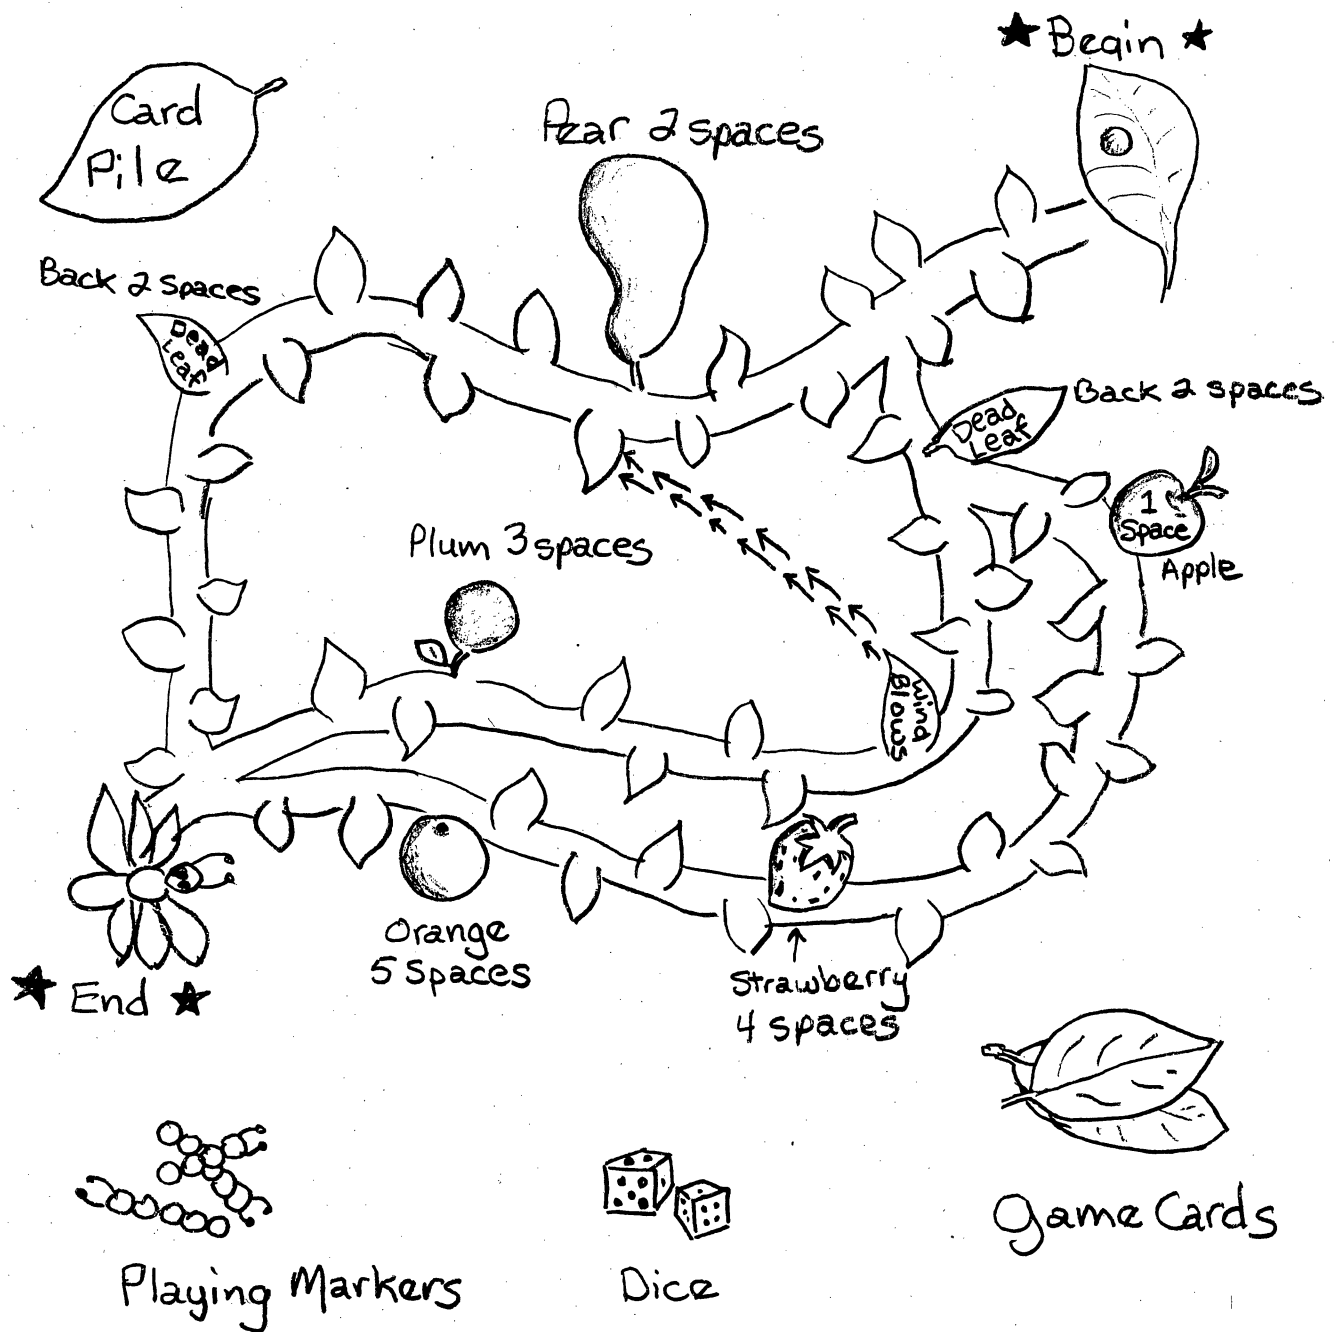 Begin
Card
Pile
Pear 2 spaces
Back 2 spaces
Dead
Leaf
Back 2 spaces
Dead
Leaf
1
Space
Apple
Plum 3 spaces
Wind
Blows
Orange
5 Spaces
Strawberry
4 spaces
End
Playing Markers
Dice
Game Cards